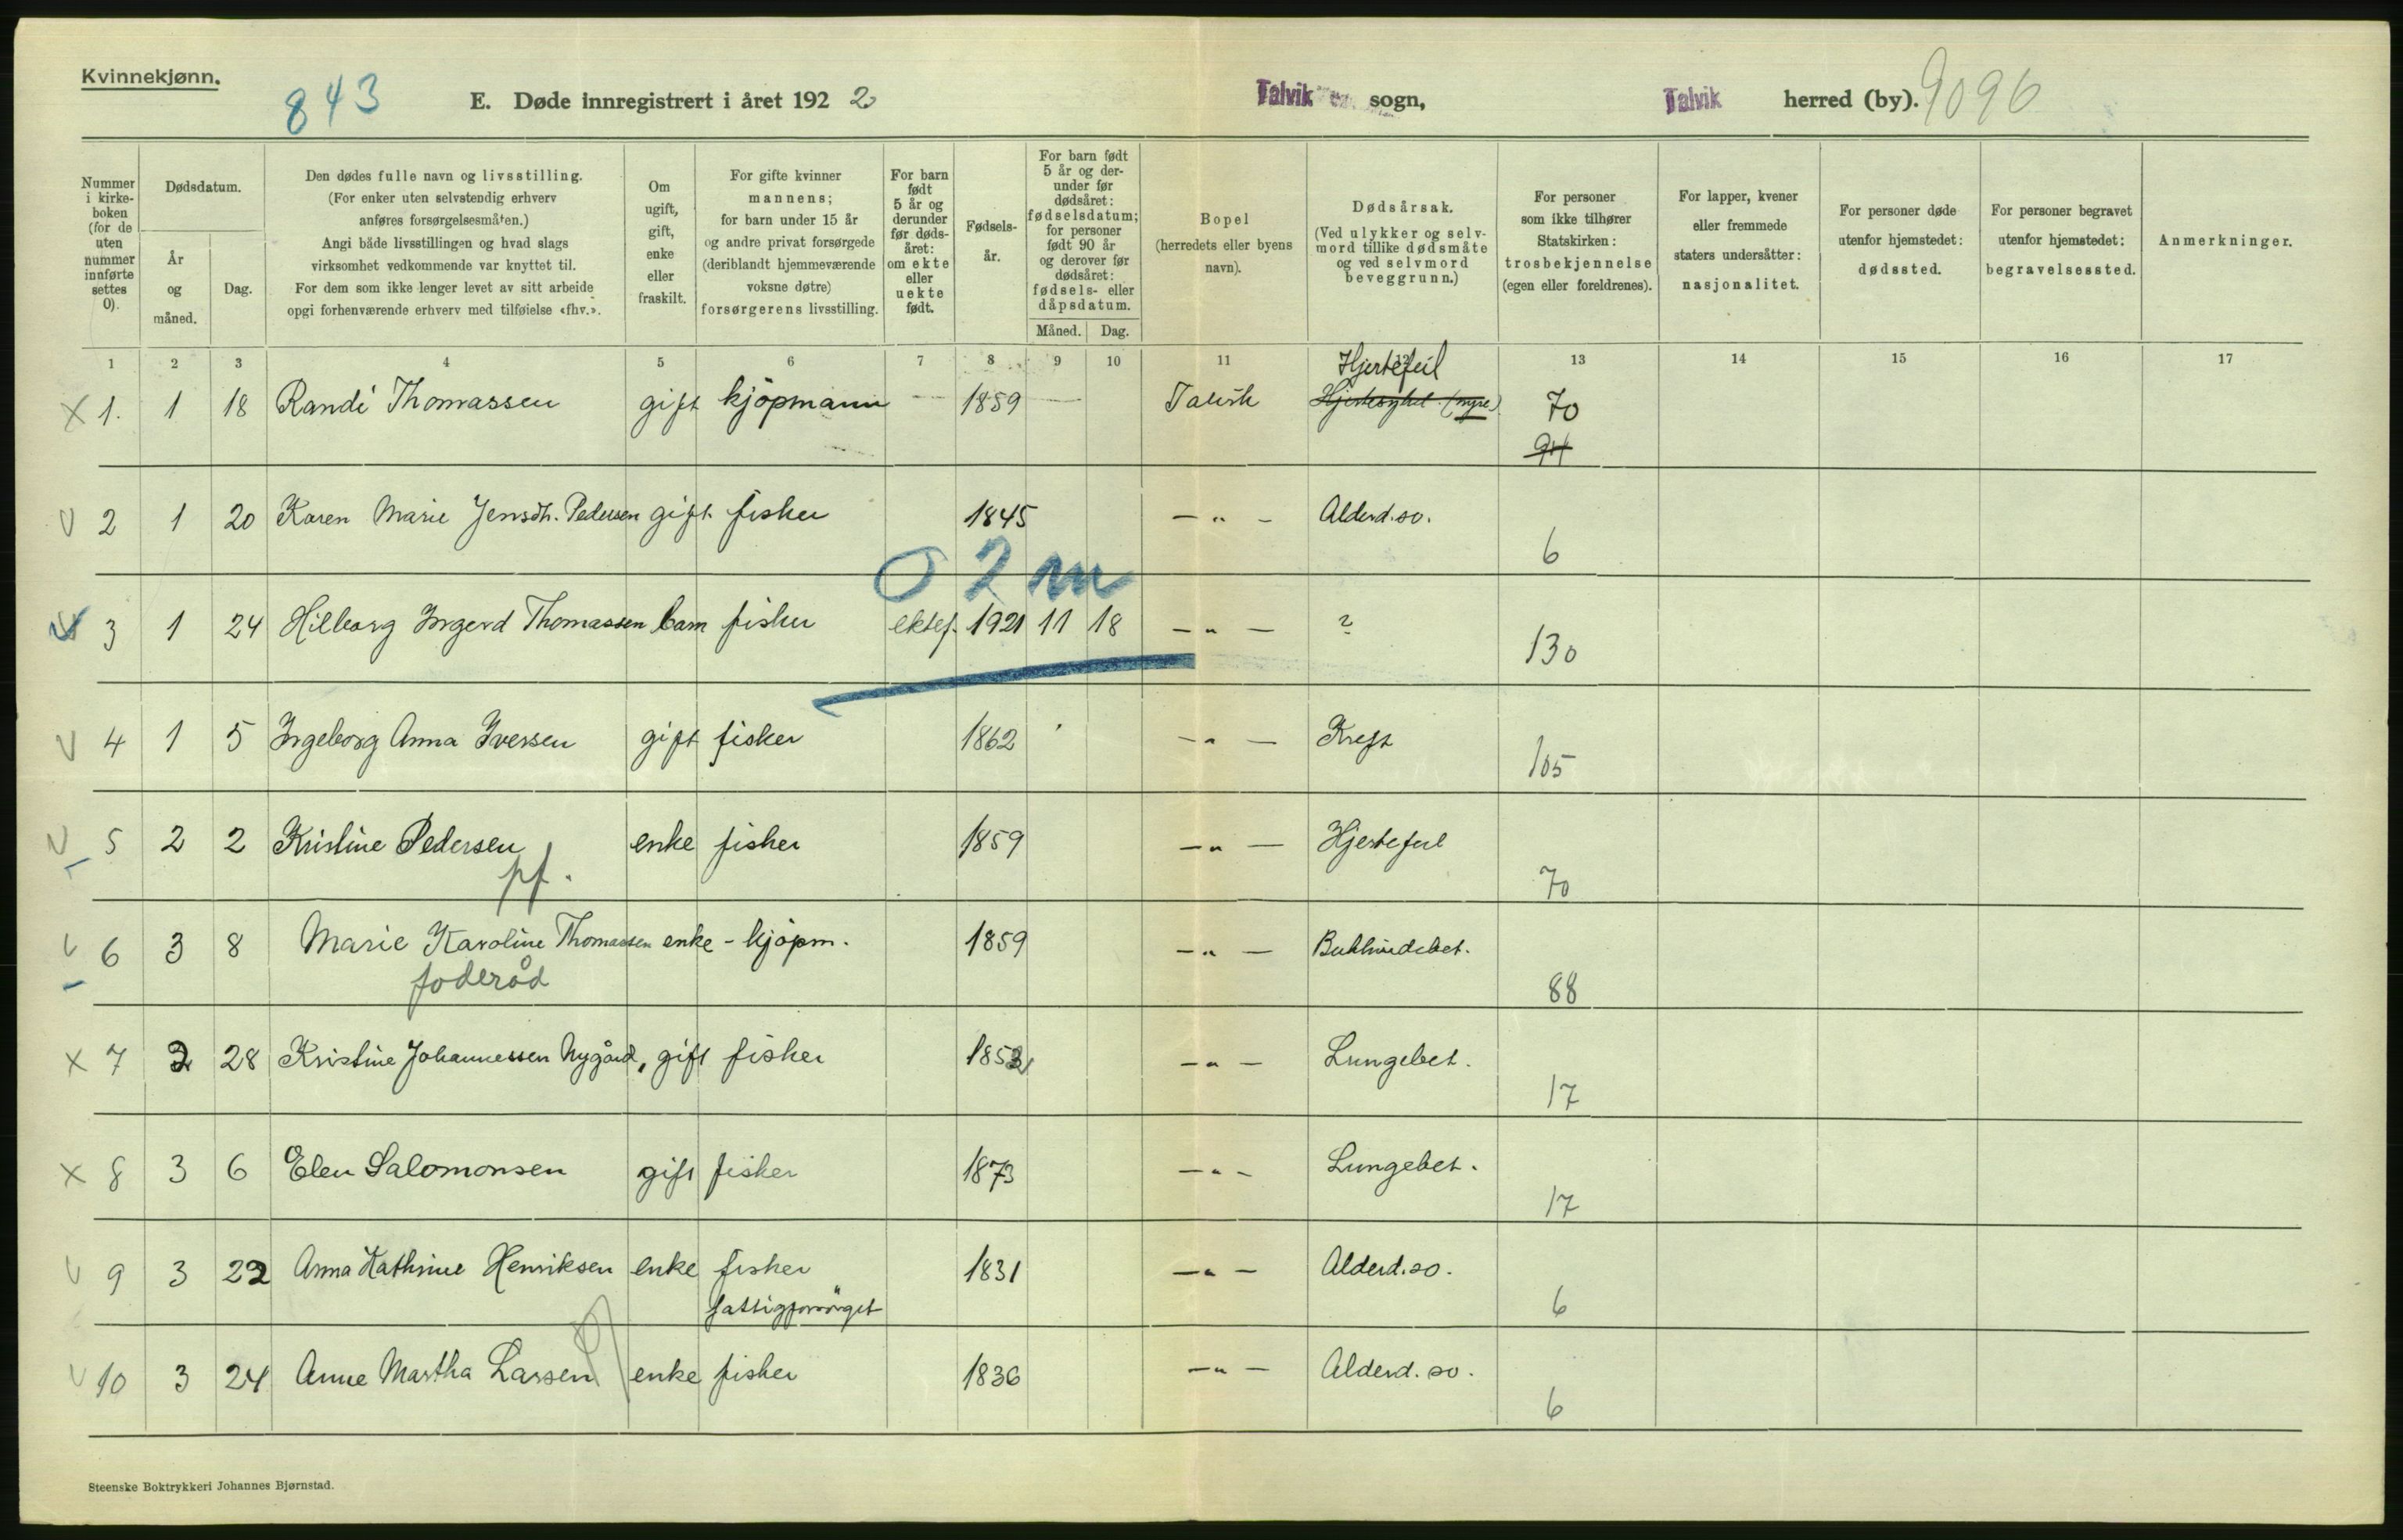 Kvinnekjønn.
843
E. Døde innregistrert i året 1922
Talvik sogn,
Talvik herred (by).
9096
Nummer i kirkeboken (for de uten nummer innførte settes 0).
Dødsdatum.
År og måned.
Dag.
Den dødes fulle navn og livsstilling.
(For enker uten selvstendig erhverv anføres forsørgelsesmåten.)
Angi både livsstillingen og hvad slags virksomhet vedkommende var knyttet til.
For dem som ikke lenger levet av sitt arbeide opgi forhenværende erhverv med tilføielse «fhv.».
Om ugift, gift, enke eller fraskilt.
For gifte kvinner mannens; for barn under 15 år og andre privat forsørgede (deriblandt hjemmeværende voksne døtre) forsørgerens livsstilling.
For barn født 5 år og derunder før dødsåret: om ekte eller uekte født.
Fødselsår.
For barn født 5 år og derunder før dødsåret: fødselsdatum; for personer født 90 år og derover før dødsåret: fødsels- eller dåpsdatum.
Måned. Dag.
Bopel (herredets eller byens navn).
Dødsårsak.
(Ved ulykker og selvmord tillike dødsmåte og ved selvmord beveggrunn.)
For personer som ikke tilhører Statskirken: trosbekjennelse (egen eller foreldrenes).
For lapper, kvener eller fremmede staters undersåtter: nasjonalitet.
For personer døde utenfor hjemstedet: dødssted.
For personer begravet utenfor hjemstedet: begravelsessted.
Anmerkninger.
1 2 3 4 5 6 7 8 9 10 11 12 13 14 15 16 17
Hjertefeil
X 1. 1 18 Randi Thomassen gift kjöpmann — 1859 — Talvik Hjertesykd. (myre) 70
94
V 2 1 20 Karen Marie Jensdh. Pedersen gift fisker 1845 — " — Alderd.so.
6
0 2 m
3 1 24 Hilborg Ingerd Thomassen barn fisker ektef. 1921 11 18 — " — ?
130
V 4 1 5 Ingeborg Anna Iversen gift fisker 1862 — " — Kreft
105
V 5 2 2 Kristine Pedersen enke fisker 1859 — " — Hjertefeil
pf.
70
V 6 3 8 Marie Karoline Thomassen enke - kjöpm. 1859 — " — Bukhindebet.
foderåd
88
X 7 2 28 Kristine Johannessen Nygård, gift fisker 1852 — " — Lungebet.
17
X 8 3 6 Elen Salomonsen gift fisker 1873 — " — Lungebet.
17
V 9 3 22 Anna Kathrine Henriksen enke fisker 1831 — " — Alderd.so.
fattigforsörget
6
V 10 3 24 Anne Martha Larsen enke fisker 1836 — " — Alderd. so.
6
Steenske Boktrykkeri Johannes Bjørnstad.